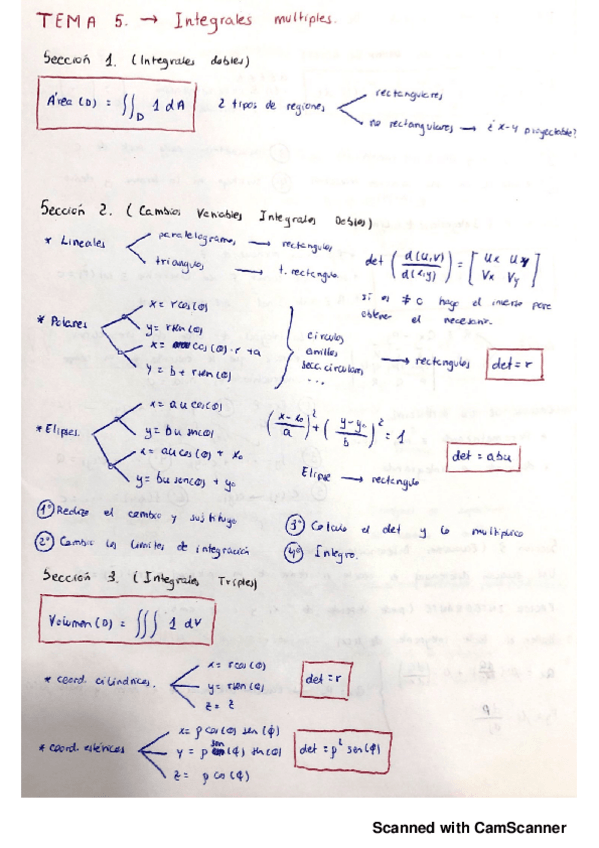 TEMA 5. → Integrales multiples.
Sección 1. (Integrales dobles)
Área (D) = ∬_D 1 dA
2 tipos de regiones
rectangulares
no rectangulares → ¿x-y proyectable?
Sección 2. (Cambios Variables Integrales Dobles)
* Lineales
paralelogramos → rectangulos
triangulos → t. rectangulo.
det (d(u,v)/d(x,y)) = [Ux Uy
Vx Vy]
si es ≠ 0 hago el inverso para
obtener el necesario.
* Polares
x = rcos(θ)
y = rsen(θ)
x = cos(θ)·r + a
y = b + rsen(θ)
circulos
anillos
secc. circulares
...
→ rectangulos
det = r
* Elipses.
x = au cos(θ)
y = bu sen(θ)
x = au cos(θ) + x₀
y = bu sen(θ) + y₀
((x-x₀)/a)² + ((y-y₀)/b)² = 1
Elipse → rectangulo
det = abu
1º Realizo el cambio y sustituyo
2º Cambio los limites de integración
3º Calculo el det y lo multiplico
4º Integro.
Sección 3. (Integrales Triples)
Volumen (D) = ∭ 1 dV
* coord. cilindricas.
x = rcos(θ)
y = rsen(θ)
z = z
det = r
* coord. esféricas
x = ρ cos(θ) sen(ϕ)
y = ρ sen(ϕ) sen(θ)
z = ρ cos(ϕ)
det = ρ² sen(ϕ)
Scanned with CamScanner